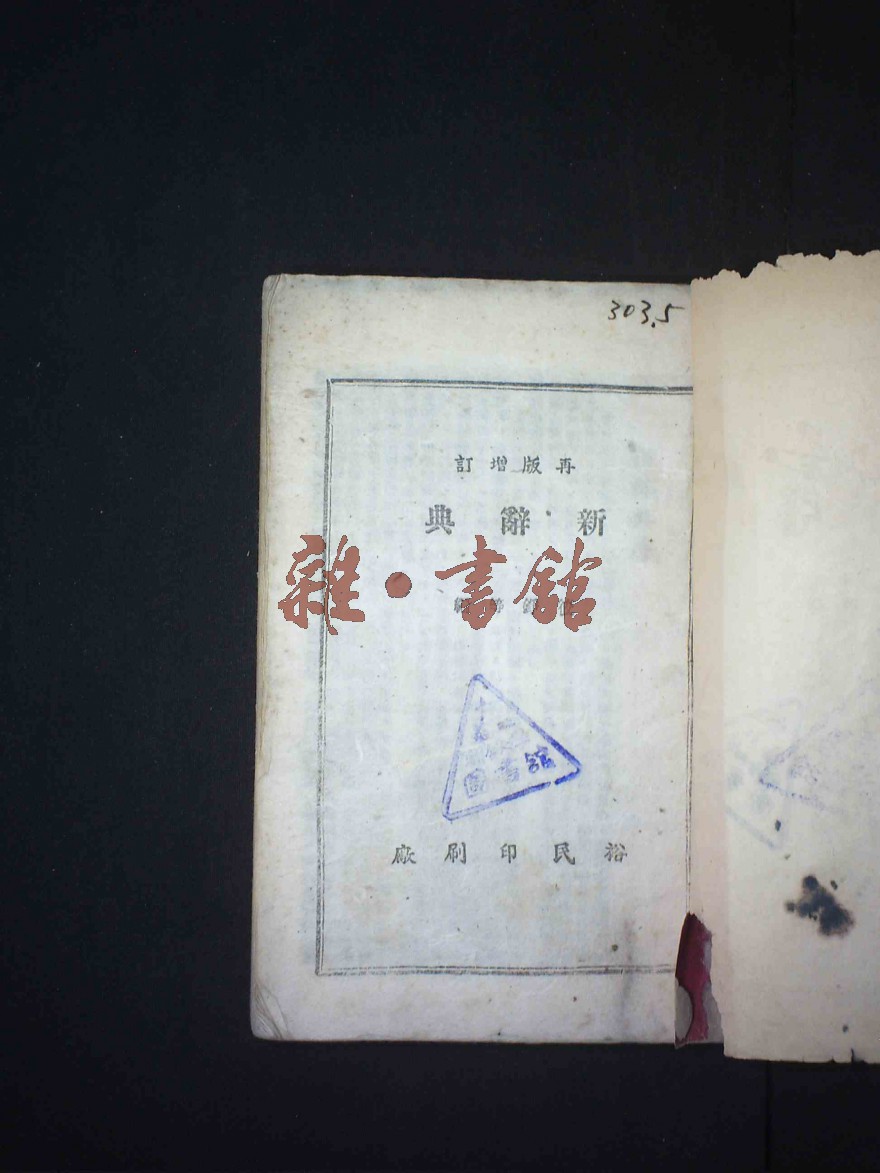 303.5
再版增訂
新辭典
雜·書館
圖書館
裕民印刷廠